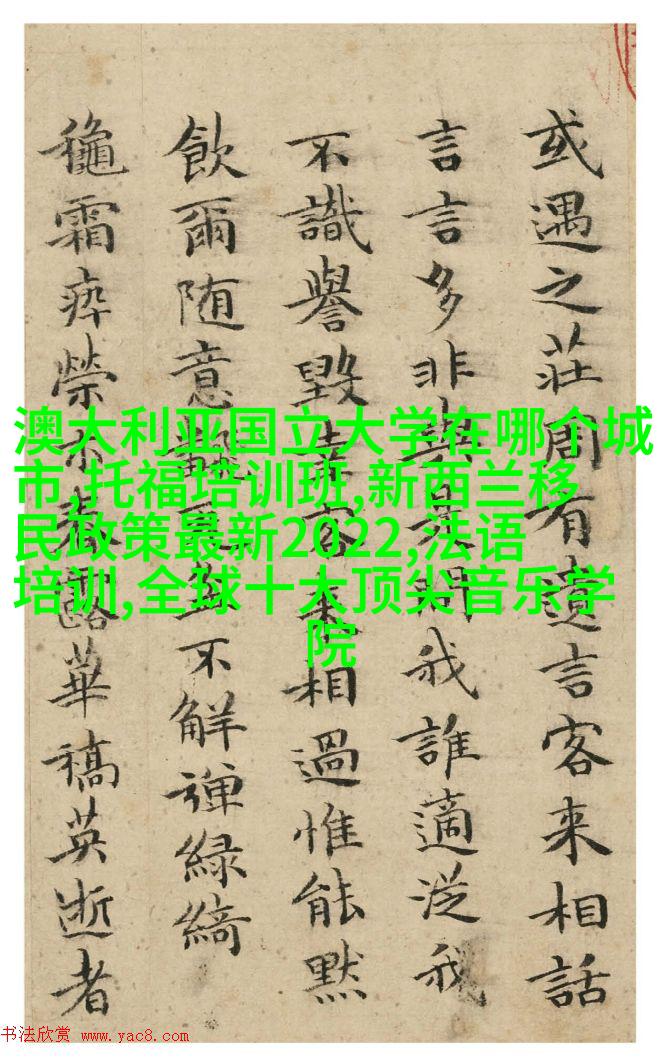 或遇之莊周有遺言客来相話
言言多非與我誰適従我
不識譽毀客相過惟能默
飲爾随意不解彈緑綺
穐霜瘁榮華槁英逝者
澳大利亚国立大学在哪个城
市,托福培训班,新西兰移
民政策最新2022,法语
培训,全球十大顶尖音乐学
院
书法欣赏 www.yac8.com